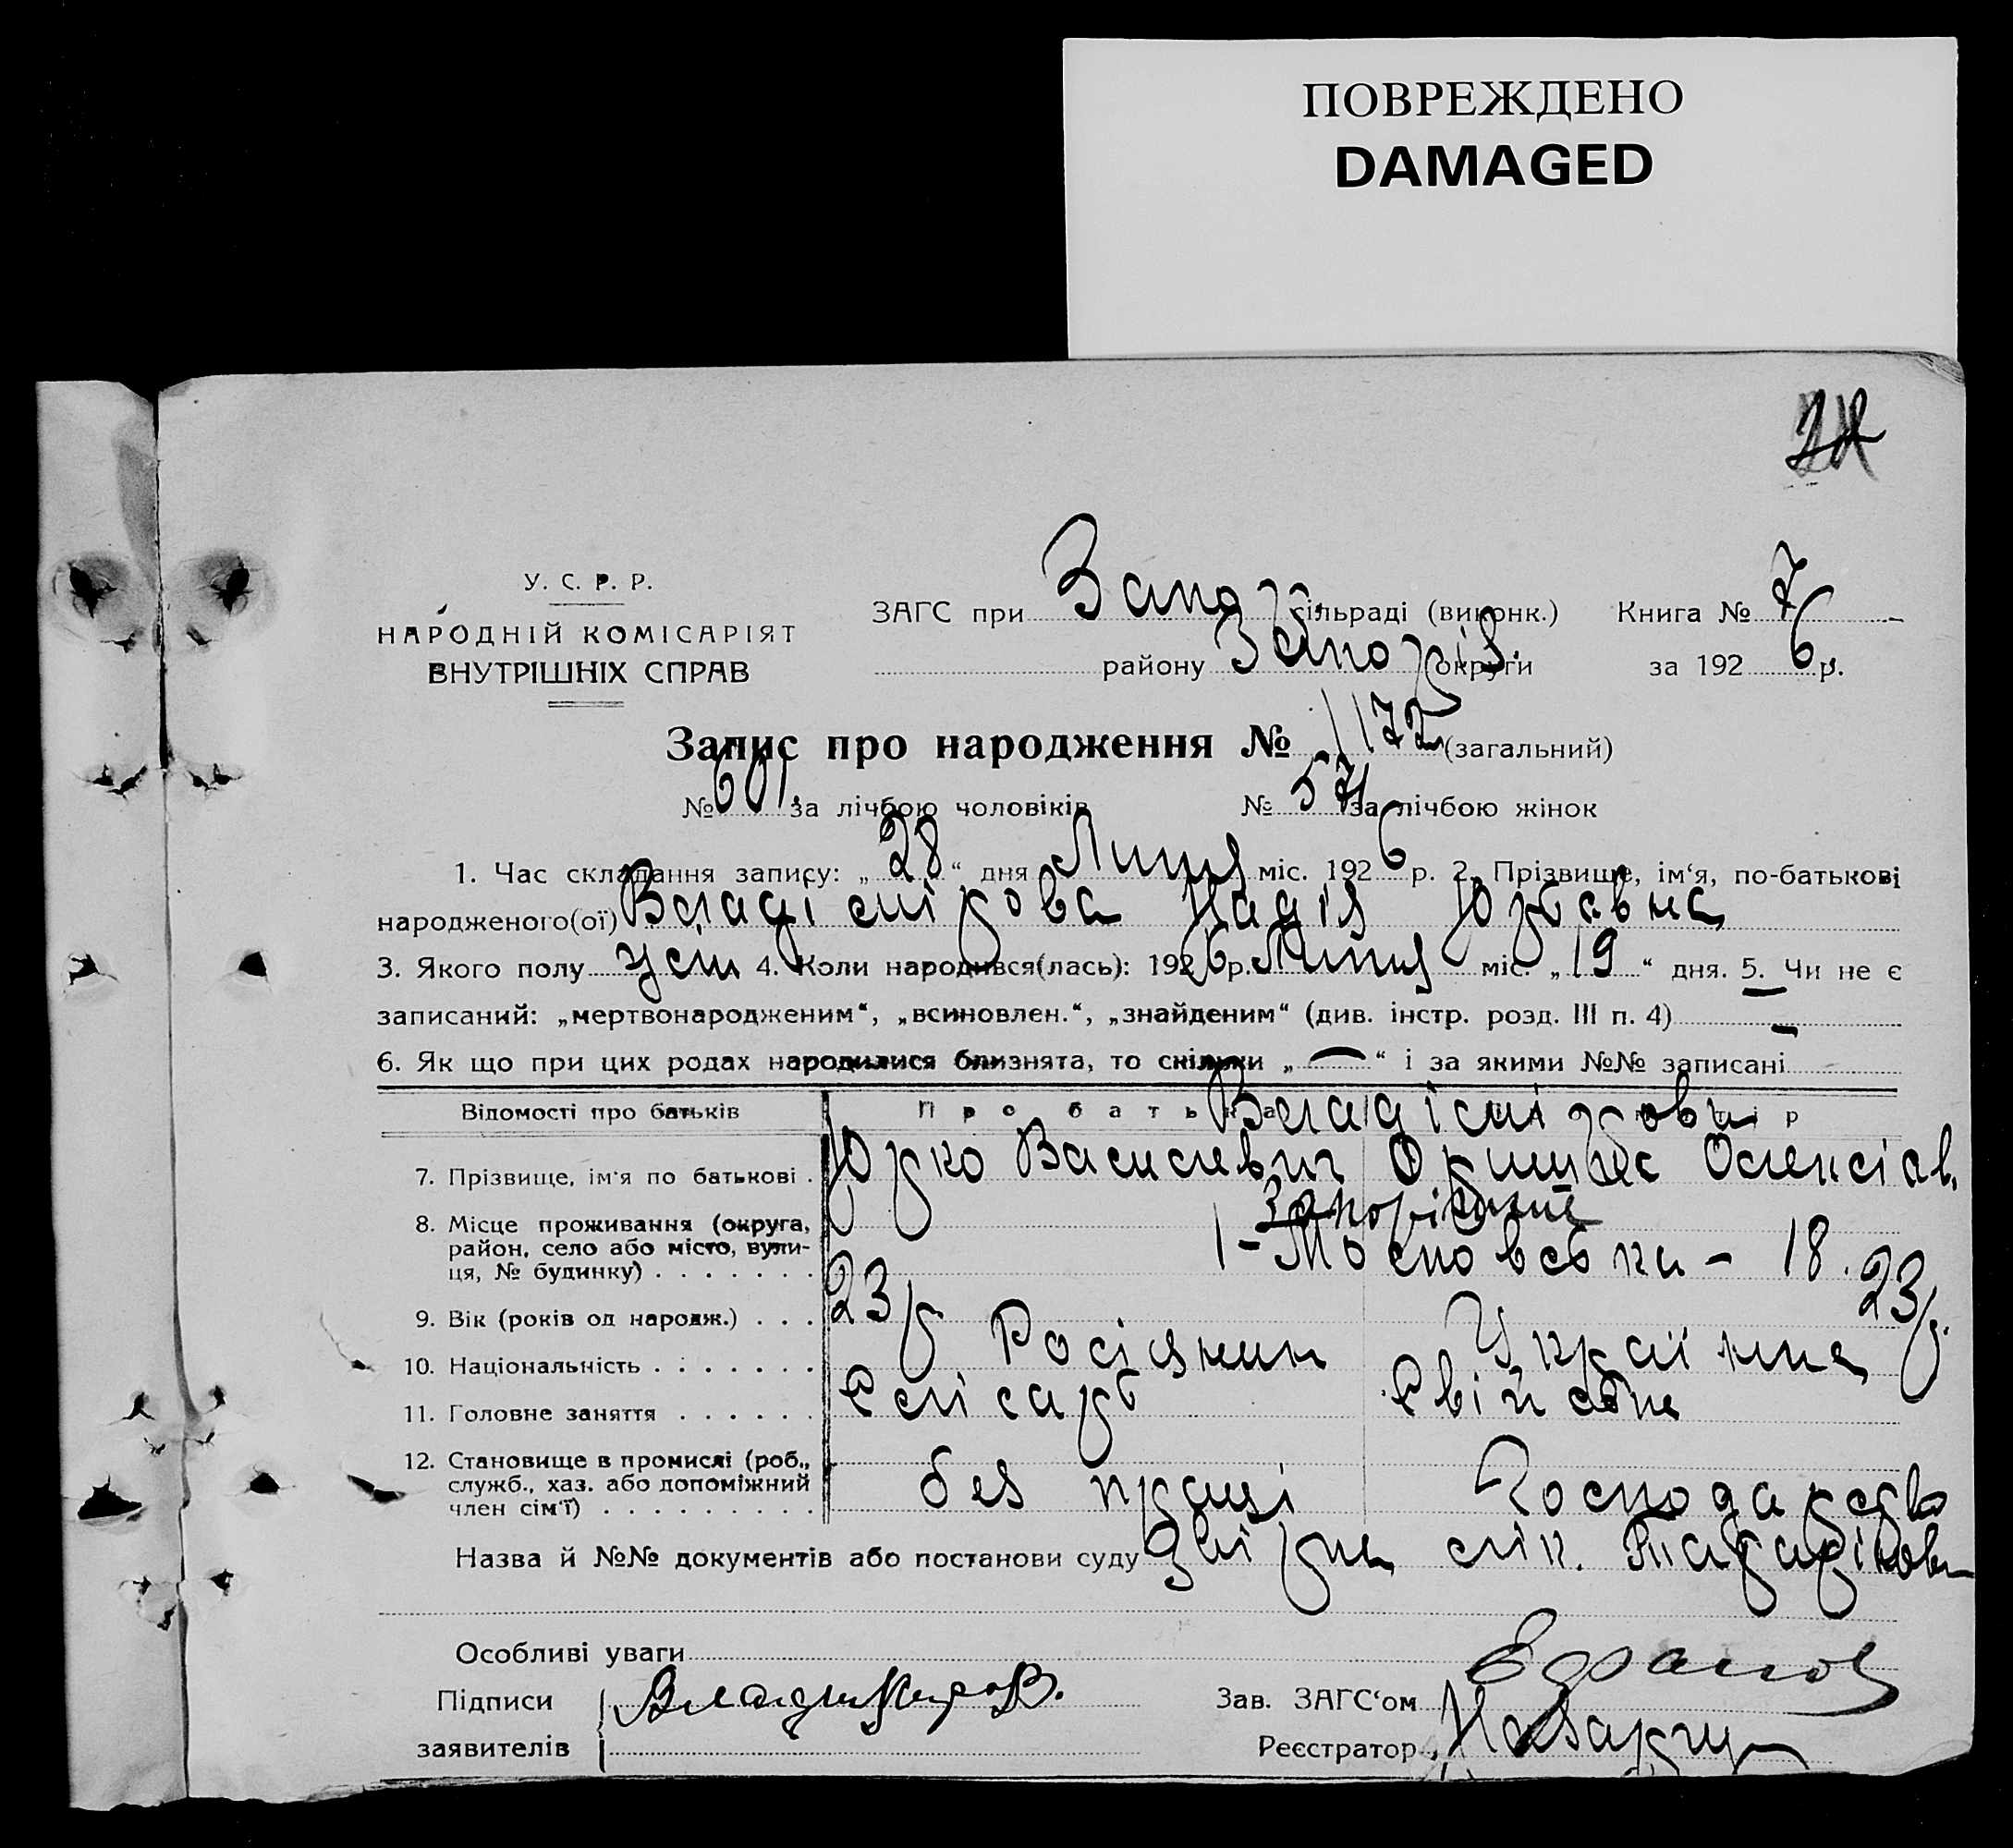 ПОВРЕЖДЕНО
DAMAGED
У. С. Р. Р.
НАРОДНІЙ КОМІСАРІЯТ
ВНУТРІШНІХ СПРАВ
ЗАГС при Запор. сільраді (виконк.) Книга № 7
району Запоріз. округи за 1926 р.
Запис про народження № 1172 (загальний)
№ 601. за лічбою чоловіків № 571 за лічбою жінок
1. Час складання запису: „28“ дня Липня міс. 1926 р. 2. Прізвище, ім‘я, по-батькові
народженого(ої) Владімірова Надія Юрьевна
3. Якого полу жін 4. Коли народився(лась): 1926 р. Липня міс. „19“ дня. 5. Чи не є
записаний: „мертвонародженим“, „всиновлен.“, „знайденим“ (див. інстр. розд. III п. 4) –
6. Як що при цих родах народилися близнята, то скільки „—“ і за якими №№ записані
Відомості про батьків Про батька Владімірови
7. Прізвище, ім‘я по батькові . Юрко Василевич Олексіїв.
8. Місце проживання (округа, Запоріжжє
район, село або місто, вули- 1 - Московська - 18.
ця, № будинку) . . . . . . .
9. Вік (років од народж.) . . . 23 р 23/р.
10. Національність . . . . . . . Росіянин Українка
11. Головне заняття . . . . . . Слісарь Свійське
12. Становище в промислі (роб.,
служб., хаз. або допоміжний без праці Господарство
член сім‘ї) . . . . . . . . .
Назва й №№ документів або постанови суду
Особливі уваги
Підписи Владимиров. Зав. ЗАГС‘ом
заявителів Реєстратор